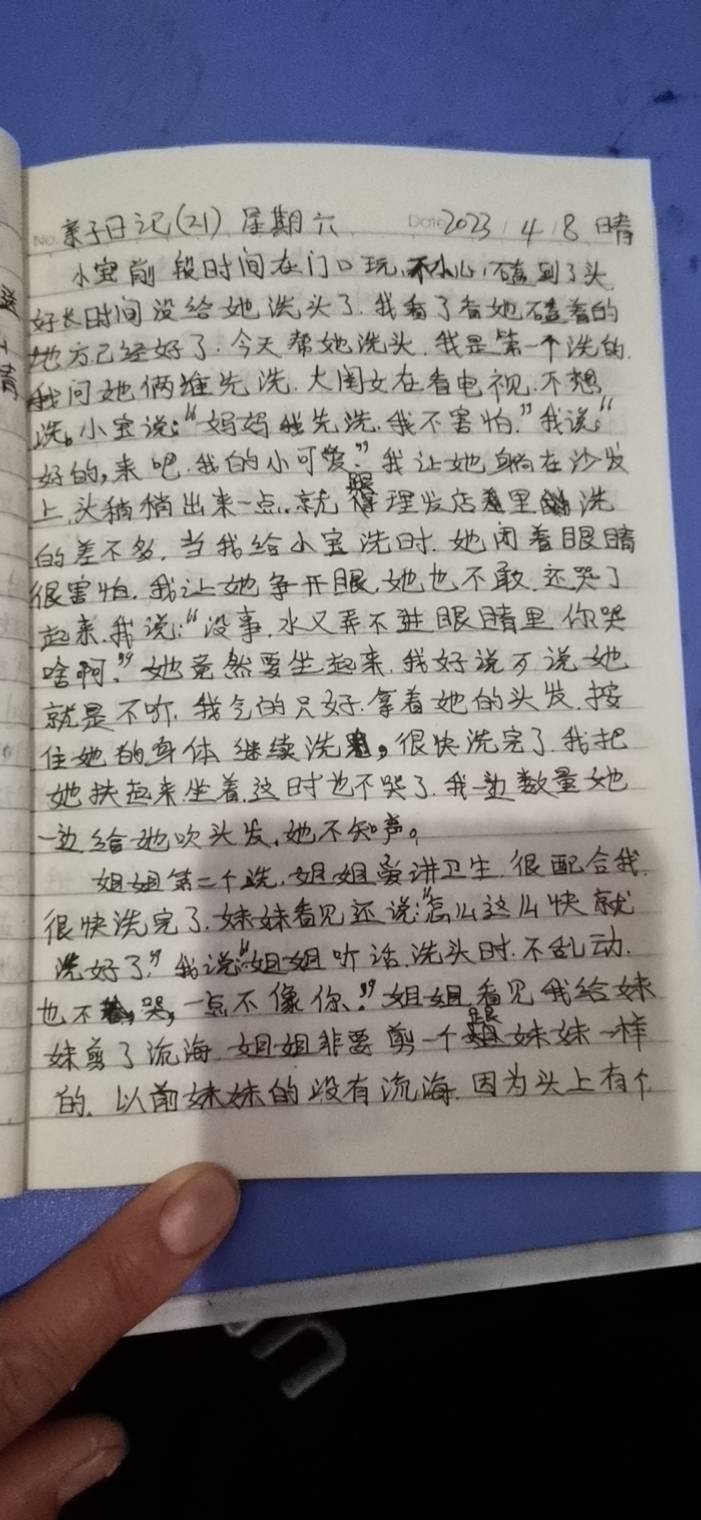 亲子日记(21) 星期六 Date 2023 4 8 晴
小宝前段时间在门口玩,不小心,碰到了头,
好长时间没给她洗头了.我看了看她碰着的
地方已经好了.今天帮她洗头.我是第一个洗的.
我问她俩谁先洗.大闺女在看电视.不想
洗。小宝说:“妈妈我先洗.我不害怕.”我说:“
好的,来吧.我的小可爱.”我让她躺在沙发
上.头稍稍出来一点.就跟理发店里洗
的差不多.当我给小宝洗时.她闭着眼睛
很害怕.我让她争开眼.她也不敢.还哭了
起来.我说:“没事.水又弄不进眼睛里.你哭
啥啊.”她竟然要坐起来.我好说歹说她
就是不听.我气的只好.拿着她的头发.按
住她的身体继续洗,很快洗完了.我把
她扶起来坐着.这时也不哭了.我一边数量她
一边给她吹头发.她不知声。
姐姐第二个洗.姐姐爱讲卫生.很配合我.
很快洗完了.妹妹看见还说:“怎么这么快就
洗好了.”我说:“姐姐听话.洗头时.不乱动.
也不哭,一点不像你.”姐姐看见我给妹
妹剪了流海.姐姐非要剪一个跟妹妹一样
的.以前妹妹的没有流海.因为头上有个